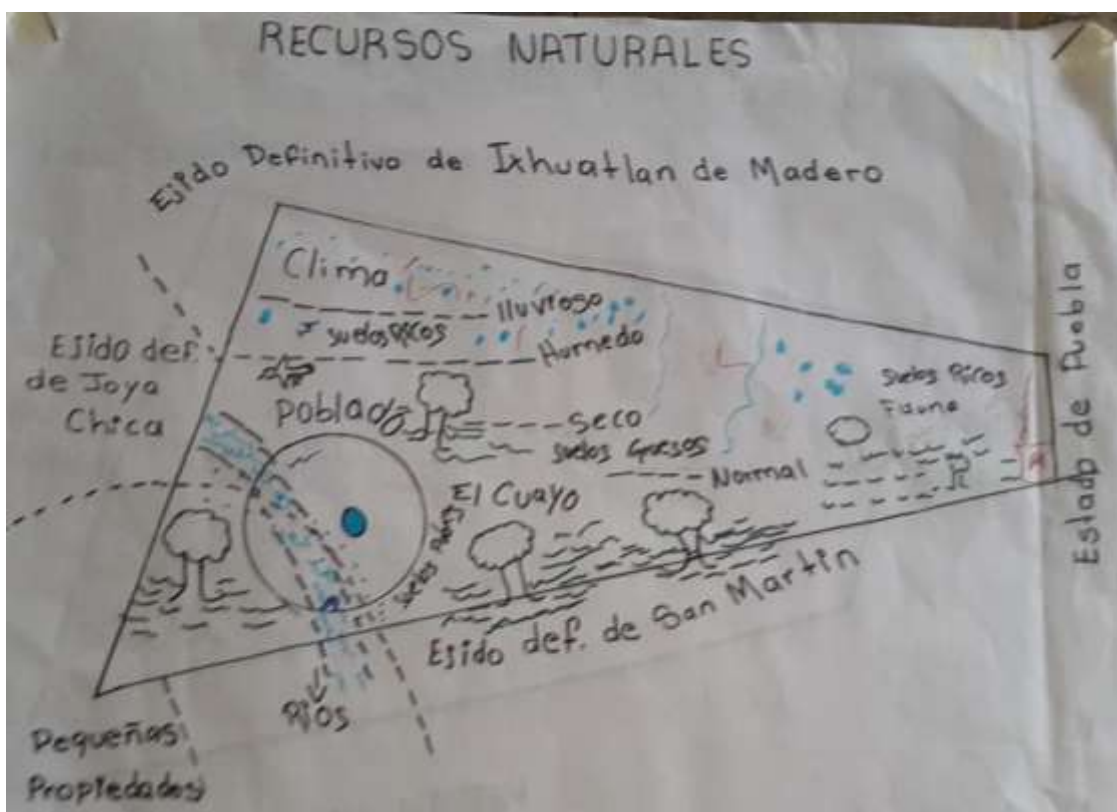 RECURSOS NATURALES
Ejido Definitivo de Ixhuatlan de Madero
Clima
lluvioso
suelos Ricos
Humedo
Ejido def.
de Joya
Chica
Poblado
Seco
suelos Gruesos
Suelos Ricos
Fauna
Normal
El Cuayo
Suelos
Estado de Puebla
Ejido def. de San Martin
Ríos
Pequeñas
Propiedades